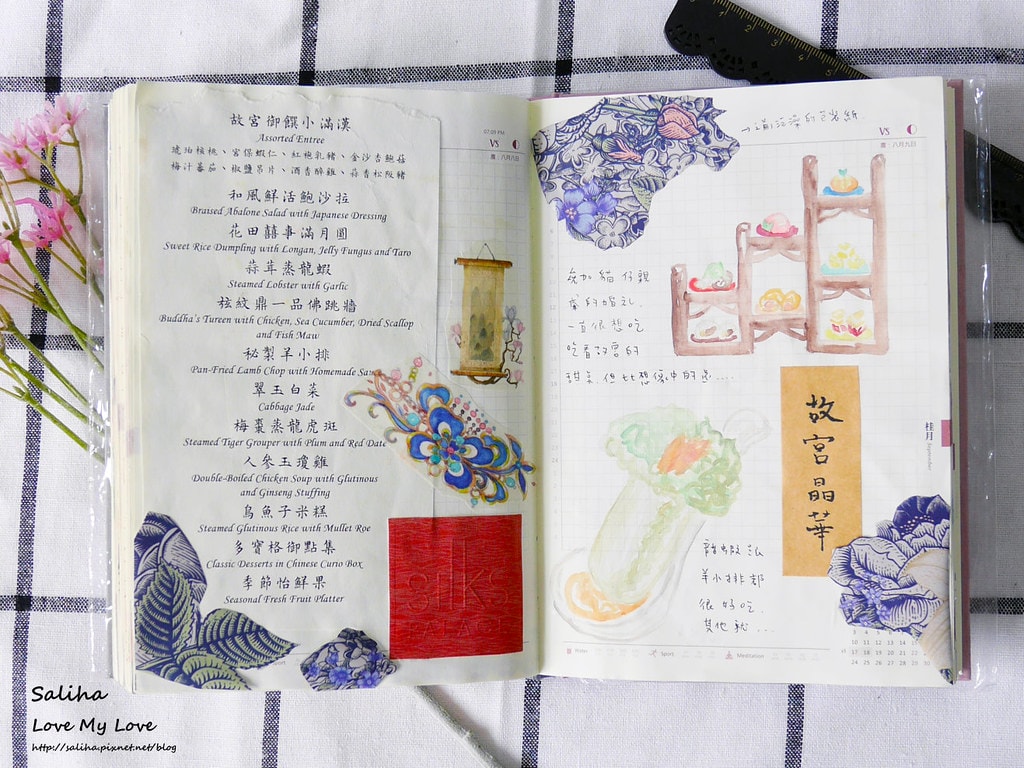 故宮御饌小滿漢
Assorted Entree
琥珀核桃、宮保蝦仁、紅袍乳豬、金沙杏鮑菇
梅汁蕃茄、椒鹽吊片、酒香醉雞、蒜香松阪豬
和風鮮活鮑沙拉
Braised Abalone Salad with Japanese Dressing
花田囍事滿月圓
Sweet Rice Dumpling with Longan, Jelly Fungus and Taro
蒜茸蒸龍蝦
Steamed Lobster with Garlic
紋鼎一品佛跳牆
Buddha's Tureen with Chicken, Sea Cucumber, Dried Scallop
and Fish Maw
秘製羊小排
Pan-Fried Lamb Chop with Homemade
翠玉白菜
Cabbage Jade
梅棗蒸龍虎斑
Steamed Tiger Grouper with Plum and Red Date
人參玉瓊雞
Double-Boiled Chicken Soup with Glutinous
and Ginseng Stuffing
烏魚子米糕
Steamed Glutinous Rice with Mullet Roe
多寶格御點集
Classic Desserts in Chinese Curio Box
季節怡鮮果
Seasonal Fresh Fruit Platter
07:00 PM
VS
八月八日
silks
的包裝紙
VS
八月九日
參加貓仔親
一直很想吃
吃看故宮的
甜點 但比想像中的
故宮晶華
桂月
September
龍蝦
羊小排都
很好吃
其他就...
Sport
Meditation
3 4 5 6 7 8 9
10 11 12 13 14 15 16
17 18 19 20 21 22 23
24 25 26 27 28 29 30
Saliha
Love My Love
http://saliha.pixnet.net/blog